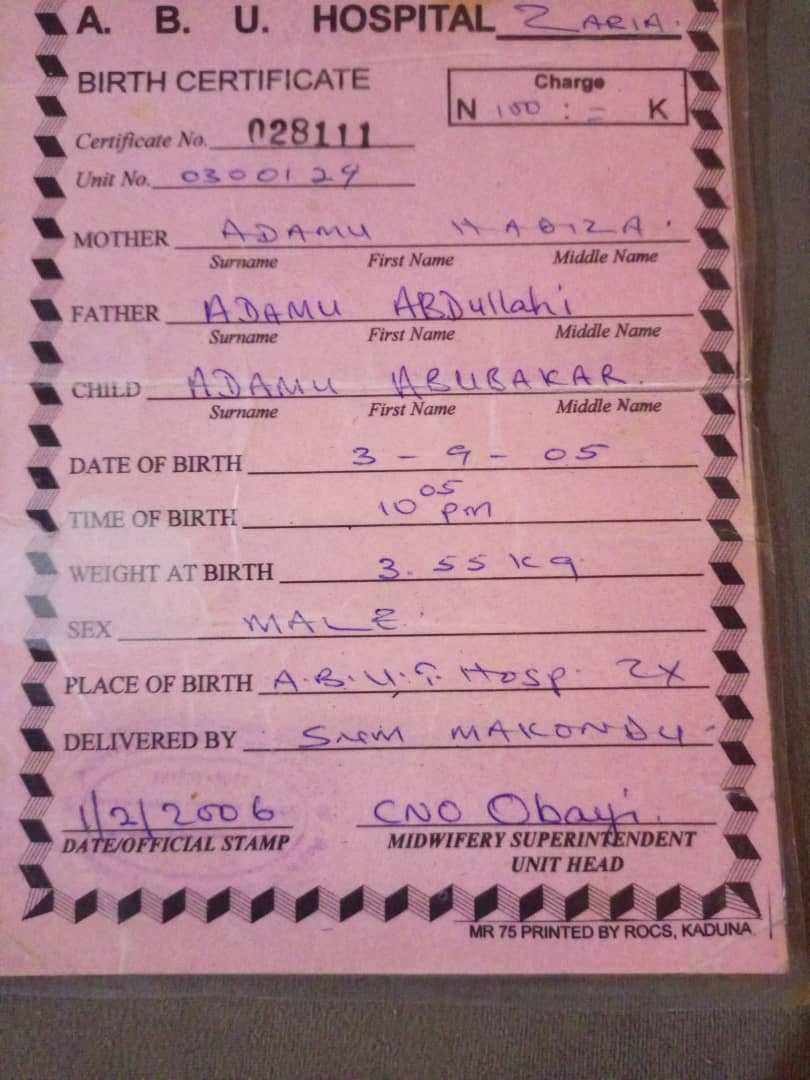 A. B. U. HOSPITAL ZARIA.
BIRTH CERTIFICATE
Charge
N 100 : = K
Certificate No. 028111
Unit No. 0300129
MOTHER ADAMU HABIZA.
Surname First Name Middle Name
FATHER ADAMU ABDullahi
Surname First Name Middle Name
CHILD ADAMU ABUBAKAR.
Surname First Name Middle Name
DATE OF BIRTH 3 - 9 - 05
TIME OF BIRTH 10 05 pm
WEIGHT AT BIRTH 3.55 kg
SEX MALE
PLACE OF BIRTH A.B.U.T. Hosp. ZX
DELIVERED BY MAKONDU
1/2/2006 CNO Obayi.
DATE/OFFICIAL STAMP MIDWIFERY SUPERINTENDENT
UNIT HEAD
MR 75 PRINTED BY ROCS, KADUNA